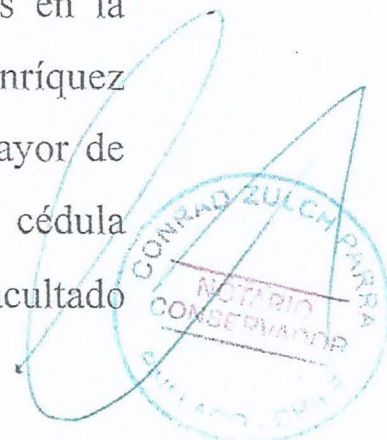 s en la
nríquez
ayor de
cédula
acultado
CONRAD ZULCH PARRA
NOTARIO
CONSERVADOR